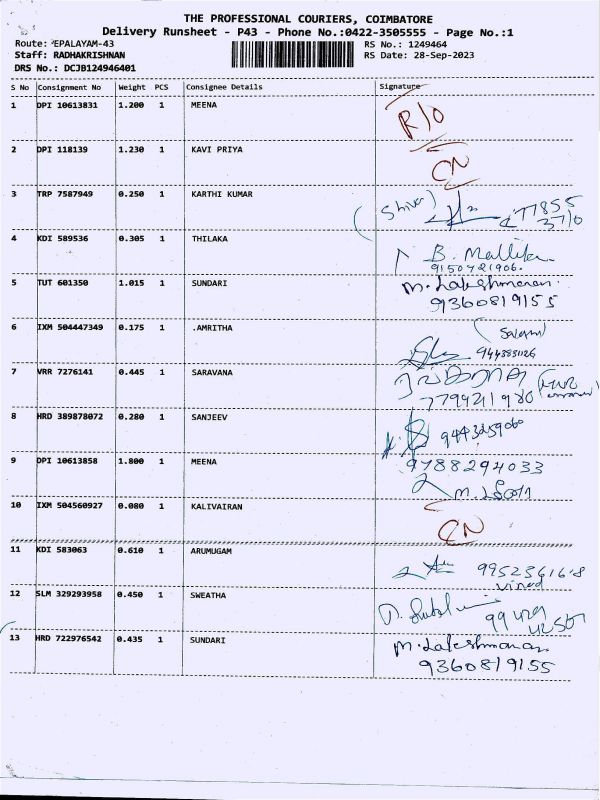 THE PROFESSIONAL COURIERS, COIMBATORE
Delivery Runsheet - P43 - Phone No.:0422-3505555 - Page No.:1
Route: EPALAYAM-43 RS No.: 1249464
Staff: RADHAKRISHNAN RS Date: 28-Sep-2023
DRS No.: DCJB124946401
S No Consignment No Weight PCS Consignee Details Signature
1 DPI 10613831 1.200 1 MEENA R/O
2 DPI 118139 1.230 1 KAVI PRIYA CN
3 TRP 7587949 0.250 1 KARTHI KUMAR (Shiva) 77855
3710
4 KDI 589536 0.305 1 THILAKA B. Mallika
9150721906.
5 TUT 601350 1.015 1 SUNDARI M. Lakshmanan
9360819155
6 IXM 504447349 0.175 1 .AMRITHA
7 VRR 7276141 0.445 1 SARAVANA
7794211980
8 HRD 389878072 0.280 1 SANJEEV
9 DPI 10613858 1.800 1 MEENA 9788294033
10 IXM 504560927 0.080 1 KALIVAIRAN CN
11 KDI 583063 0.610 1 ARUMUGAM 9952361618
Vinod
12 SLM 329293958 0.450 1 SWEATHA 99429
42567
13 HRD 722976542 0.435 1 SUNDARI M. Lakshmanan
9360819155